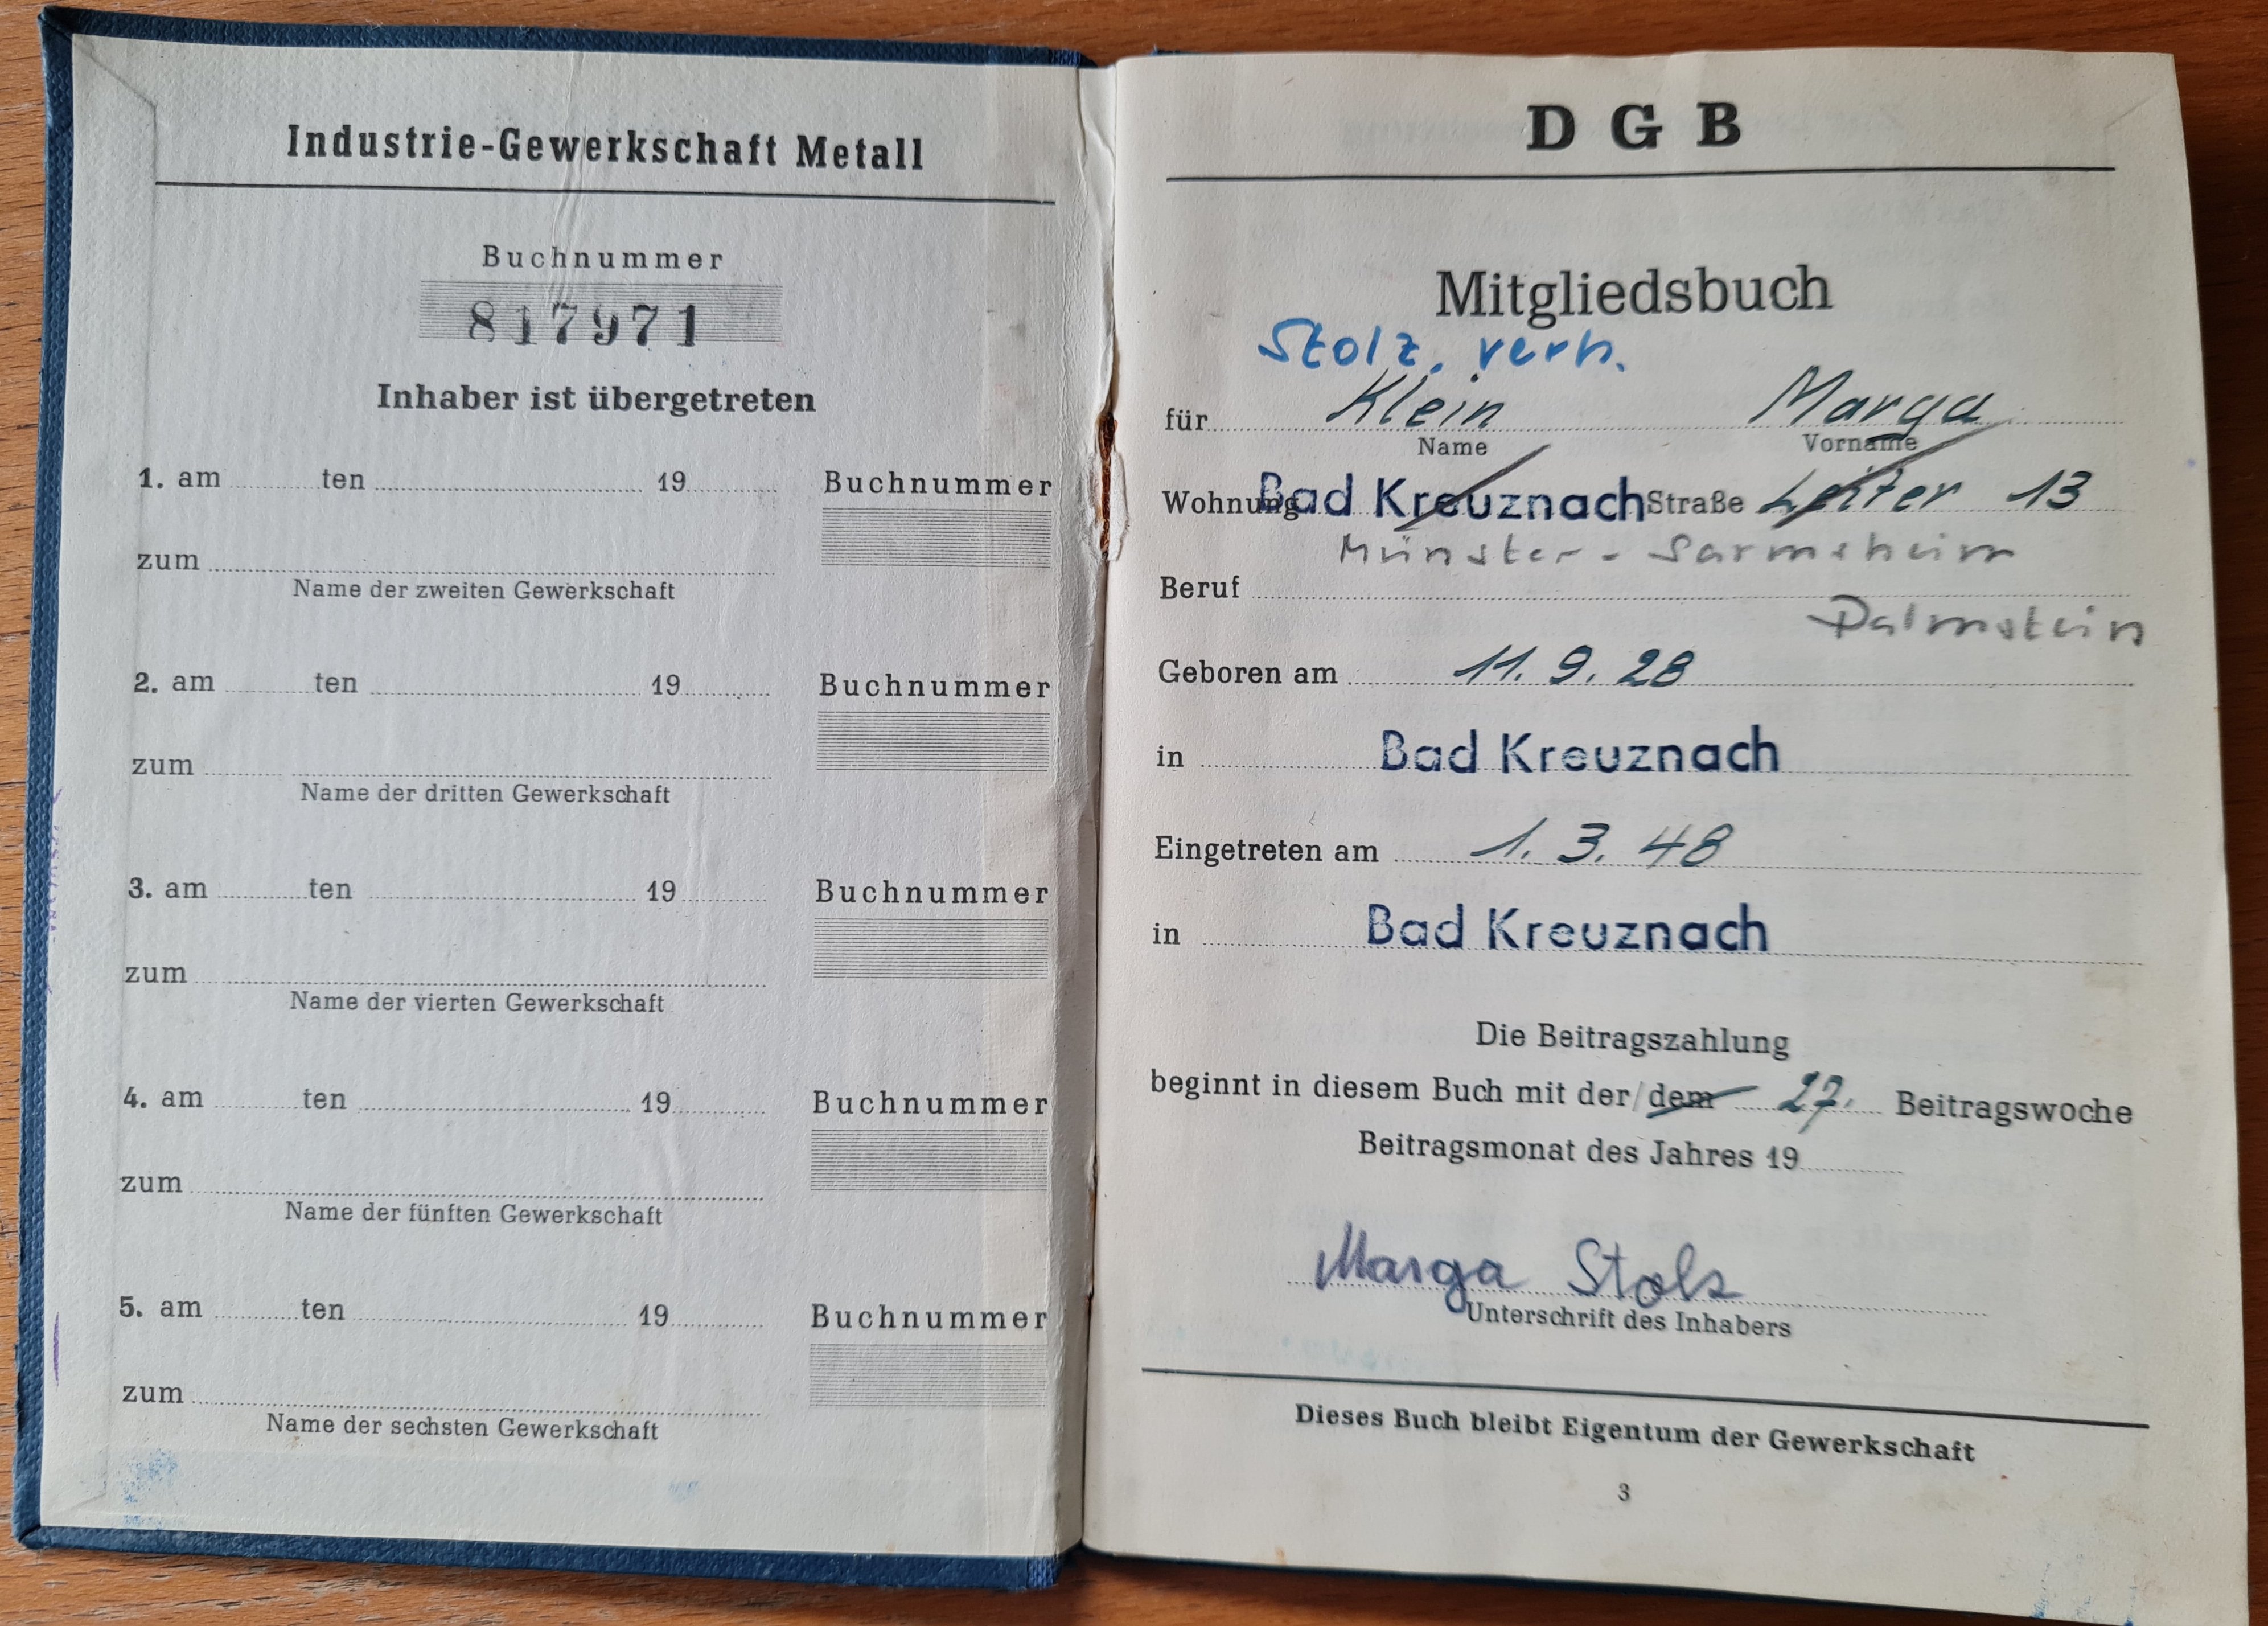 Industrie-Gewerkschaft Metall
Buchnummer
817971
Inhaber ist übergetreten
1. am ten 19 Buchnummer
zum
Name der zweiten Gewerkschaft
2. am ten 19 Buchnummer
zum
Name der dritten Gewerkschaft
3. am ten 19 Buchnummer
zum
Name der vierten Gewerkschaft
4. am ten 19 Buchnummer
zum
Name der fünften Gewerkschaft
5. am ten 19 Buchnummer
zum
Name der sechsten Gewerkschaft
DGB
Mitgliedsbuch
Stolz. verh.
für Klein Marga
Name Vorname
Wohnung Bad Kreuznach Straße Leiter 13
Münster-Sarmsheim
Beruf
Dalmstein
Geboren am 11. 9. 28
in Bad Kreuznach
Eingetreten am 1. 3. 48
in Bad Kreuznach
Die Beitragszahlung
beginnt in diesem Buch mit der/dem 27. Beitragswoche
Beitragsmonat des Jahres 19
Marga Stolz
Unterschrift des Inhabers
Dieses Buch bleibt Eigentum der Gewerkschaft
3